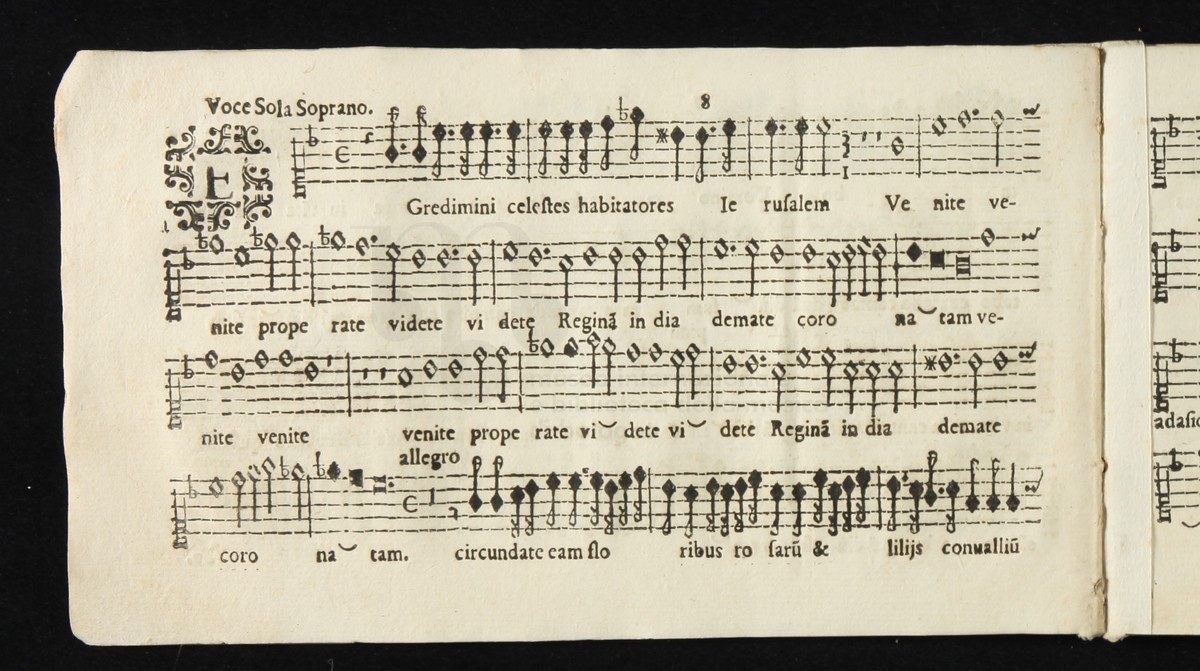 Voce Sola Soprano.
8
E
Gredimini celeſtes habitatores Ie ruſalem Ve nite ve-
3
1
nite prope rate videte vi dete Reginã in dia demate coro na tam ve-
nite venite venite prope rate vi dete vi dete Reginã in dia demate
allegro
coro na tam. circundate eam flo ribus ro ſarũ & lilijs conualliũ